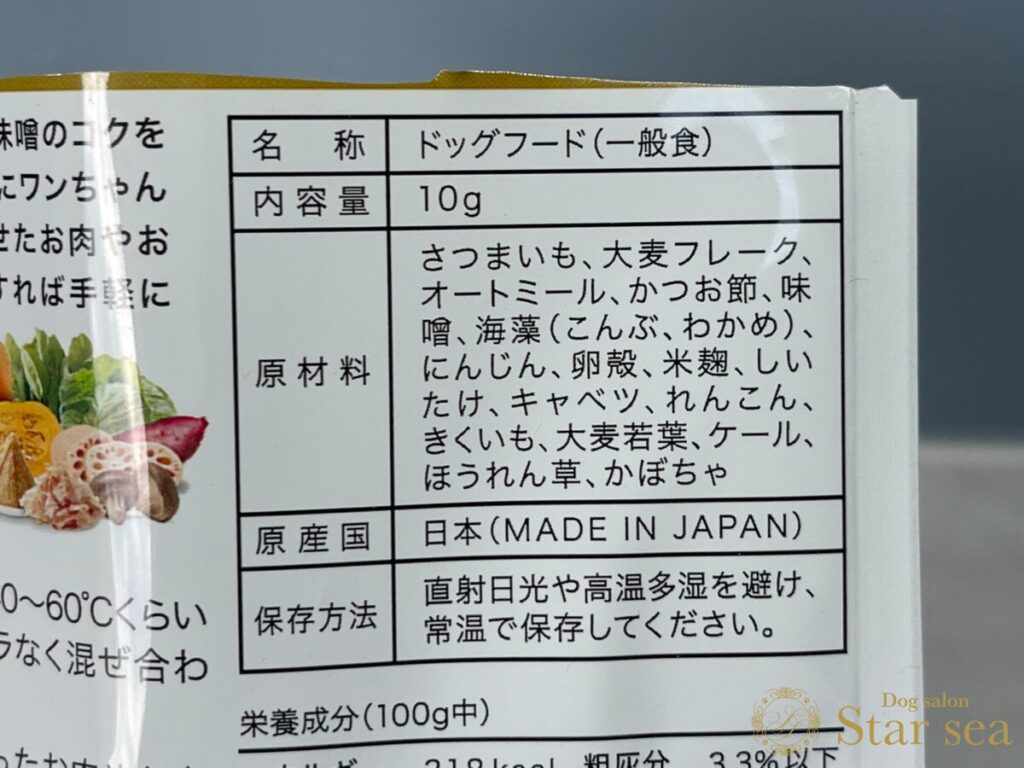 味噌のコクを
にワンちゃん
せたお肉やお
すれば手軽に
0〜60℃くらい
ラなく混ぜ合わ
名称 ドッグフード(一般食)
内容量 10g
原材料
さつまいも、大麦フレーク、
オートミール、かつお節、味
噌、海藻(こんぶ、わかめ)、
にんじん、卵殻、米麹、しい
たけ、キャベツ、れんこん、
きくいも、大麦若葉、ケール、
ほうれん草、かぼちゃ
原産国 日本(MADE IN JAPAN)
保存方法
直射日光や高温多湿を避け、
常温で保存してください。
栄養成分(100g中)
318kcal 粗灰分 3.3%以下
Dog salon
Star sea